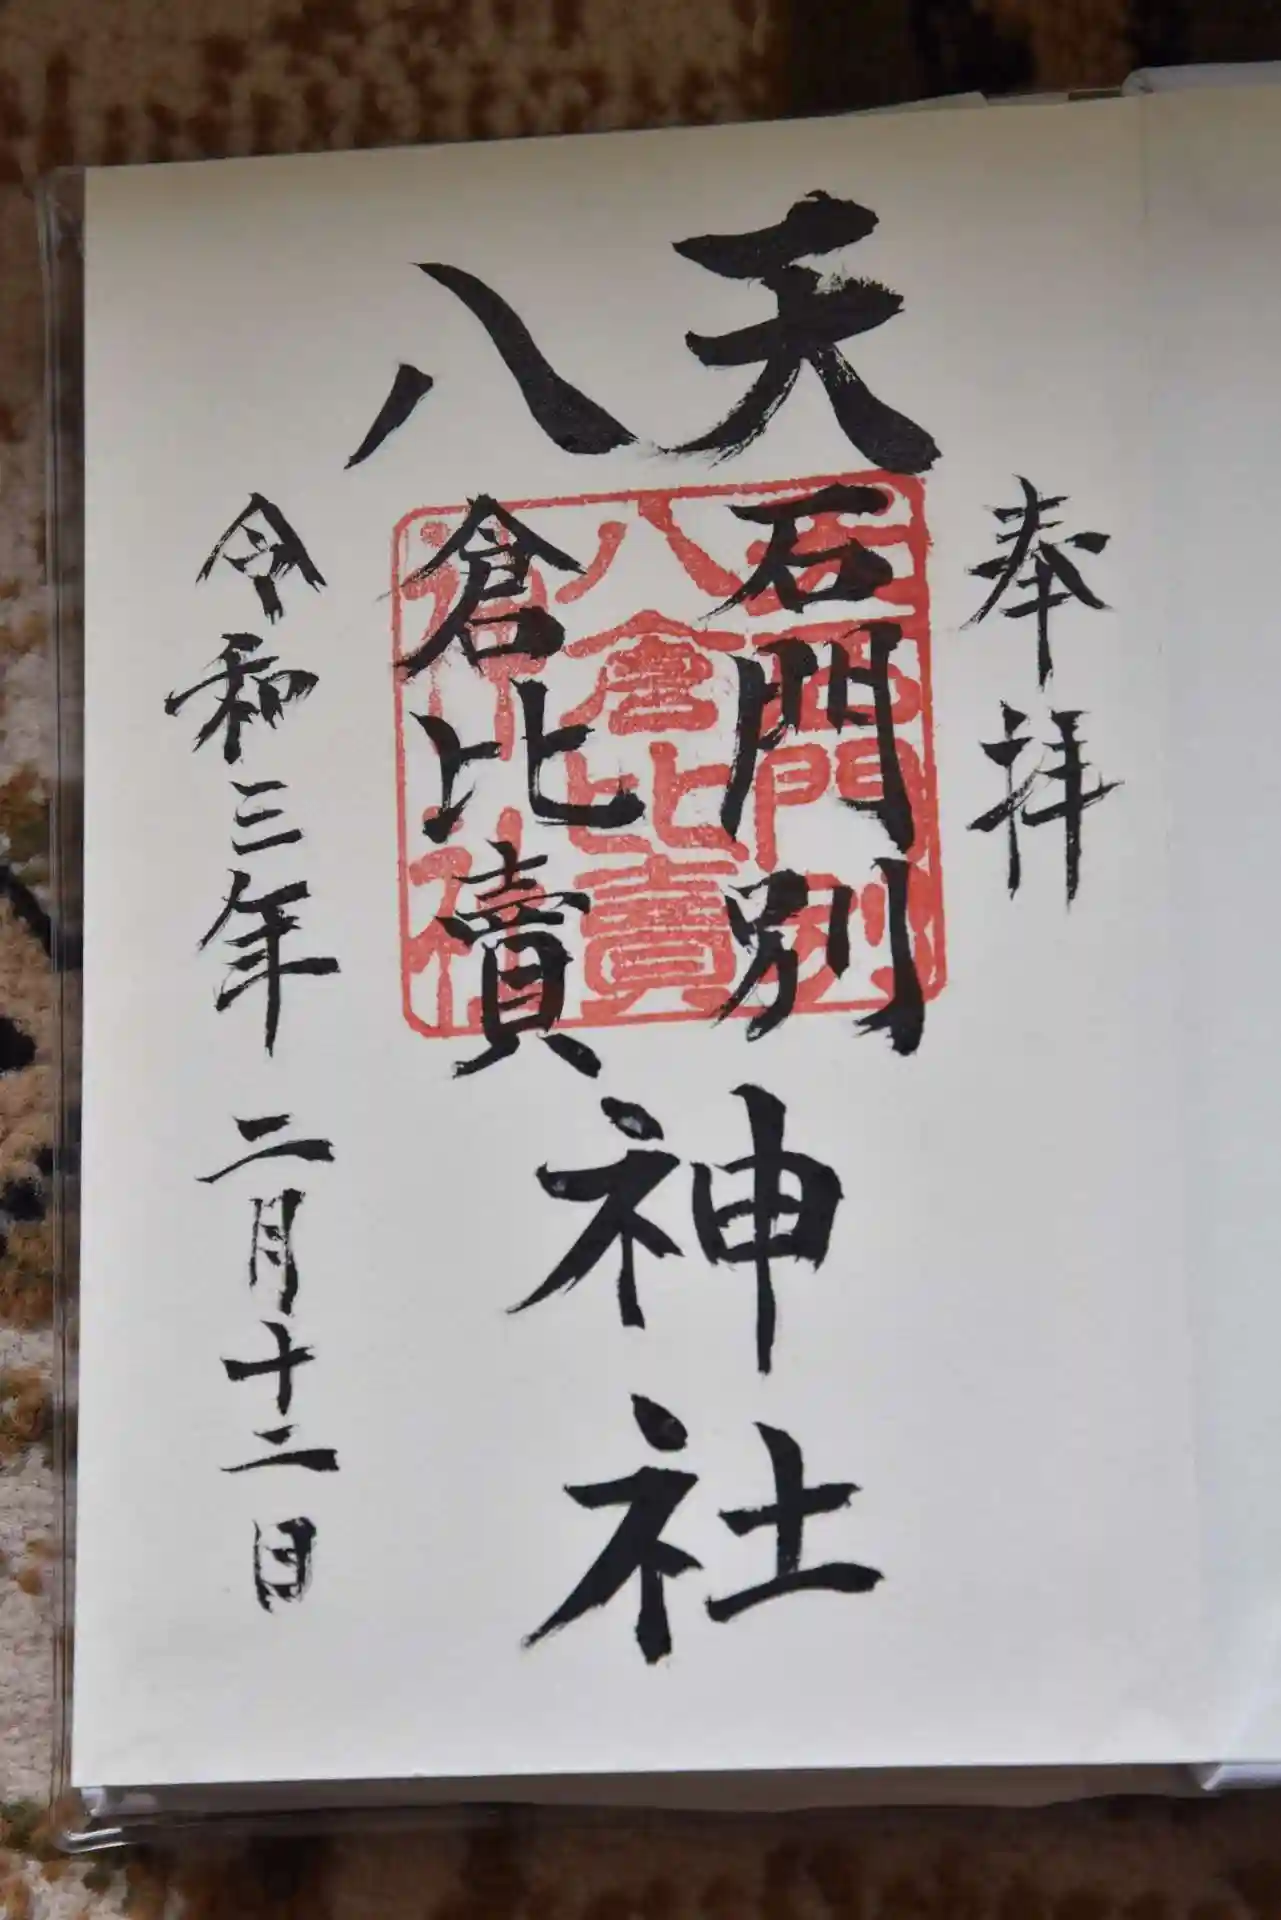 奉拝
天石門別
八倉比賣
神社
令和三年二月十二日
天石門別
八倉比賣
神社